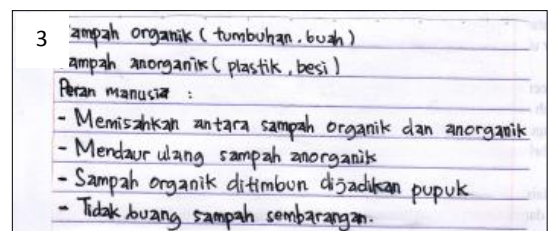 3
ampah organik ( tumbuhan . buah )
ampah anorganik ( plastik , besi )
Peran manusia :
- Memisahkan antara sampah organik dan anorganik
- Mendaur ulang sampah anorganik
- Sampah organik ditimbun dijadikan pupuk
- Tidak buang sampah sembarangan.